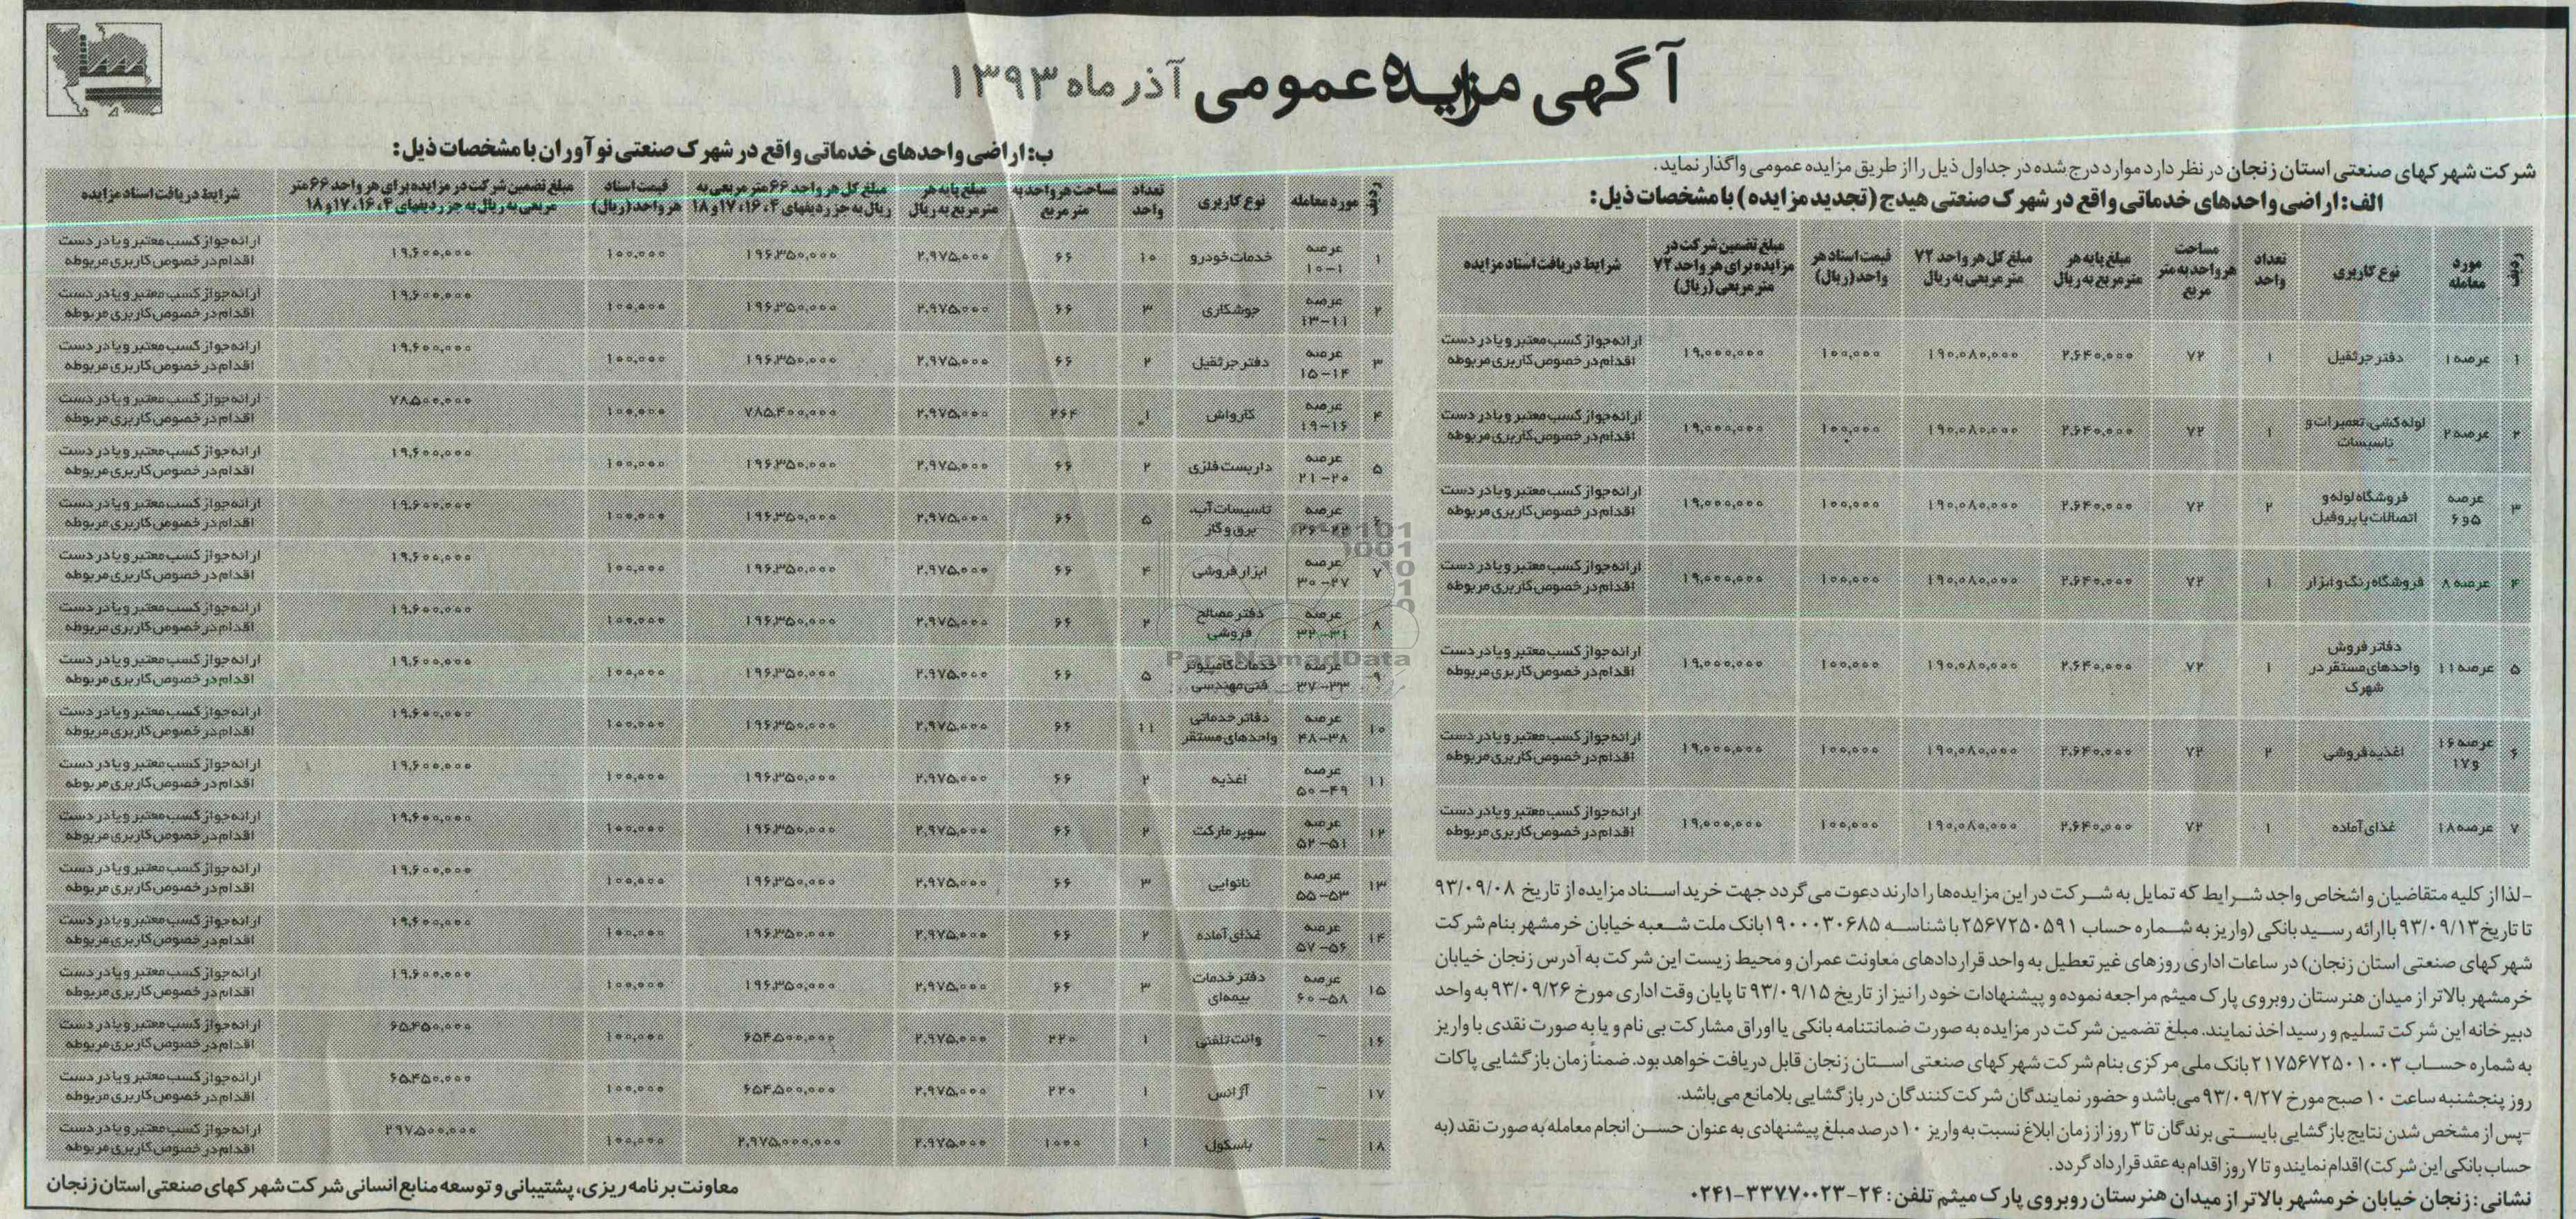 آگهی مزایده عمومی آذر ماه ۱۳۹۳
شرکت شهرکهای صنعتی استان زنجان در نظر دارد موارد درج شده در جداول ذیل را از طریق مزایده عمومی واگذار نماید.
الف: اراضی واحدهای خدماتی واقع در شهرک صنعتی هیدج (تجدید مزایده) با مشخصات ذیل:
ردیف | مورد معامله | نوع کاربری | تعداد واحد | مساحت هر واحد به متر مربع | مبلغ پایه هر متر مربع به ریال | مبلغ کل هر واحد ۷۲ متر مربعی به ریال | قیمت اسناد هر واحد (ریال) | مبلغ تضمین شرکت در مزایده برای هر واحد ۷۲ متر مربعی (ریال) | شرایط دریافت اسناد مزایده
۱ | عرصه ۱ | دفتر جرثقیل | ۱ | ۷۲ | ۲,۶۴۰,۰۰۰ | ۱۹۰,۰۸۰,۰۰۰ | ۱۰۰,۰۰۰ | ۱۹,۰۰۰,۰۰۰ | ارائه جواز کسب معتبر و یا در دست اقدام در خصوص کاربری مربوطه
۲ | عرصه ۲ | لوله کشی، تعمیرات و تاسیسات | ۱ | ۷۲ | ۲,۶۴۰,۰۰۰ | ۱۹۰,۰۸۰,۰۰۰ | ۱۰۰,۰۰۰ | ۱۹,۰۰۰,۰۰۰ | ارائه جواز کسب معتبر و یا در دست اقدام در خصوص کاربری مربوطه
۳ | عرصه ۵ و ۶ | فروشگاه لوله و اتصالات یا پروفیل | ۲ | ۷۲ | ۲,۶۴۰,۰۰۰ | ۱۹۰,۰۸۰,۰۰۰ | ۱۰۰,۰۰۰ | ۱۹,۰۰۰,۰۰۰ | ارائه جواز کسب معتبر و یا در دست اقدام در خصوص کاربری مربوطه
۴ | عرصه ۸ | فروشگاه رنگ و ابزار | ۱ | ۷۲ | ۲,۶۴۰,۰۰۰ | ۱۹۰,۰۸۰,۰۰۰ | ۱۰۰,۰۰۰ | ۱۹,۰۰۰,۰۰۰ | ارائه جواز کسب معتبر و یا در دست اقدام در خصوص کاربری مربوطه
۵ | عرصه ۱۱ | دفاتر فروش واحدهای مستقر در شهرک | ۱ | ۷۲ | ۲,۶۴۰,۰۰۰ | ۱۹۰,۰۸۰,۰۰۰ | ۱۰۰,۰۰۰ | ۱۹,۰۰۰,۰۰۰ | ارائه جواز کسب معتبر و یا در دست اقدام در خصوص کاربری مربوطه
۶ | عرصه ۱۶ و ۱۷ | اغذیه فروشی | ۲ | ۷۲ | ۲,۶۴۰,۰۰۰ | ۱۹۰,۰۸۰,۰۰۰ | ۱۰۰,۰۰۰ | ۱۹,۰۰۰,۰۰۰ | ارائه جواز کسب معتبر و یا در دست اقدام در خصوص کاربری مربوطه
۷ | عرصه ۱۸ | غذای آماده | ۱ | ۷۲ | ۲,۶۴۰,۰۰۰ | ۱۹۰,۰۸۰,۰۰۰ | ۱۰۰,۰۰۰ | ۱۹,۰۰۰,۰۰۰ | ارائه جواز کسب معتبر و یا در دست اقدام در خصوص کاربری مربوطه
-لذا از کلیه متقاضیان و اشخاص واجد شرایط که تمایل به شرکت در این مزایده‌ها را دارند دعوت می گردد جهت خرید اسناد مزایده از تاریخ ۹۳/۰۹/۰۸
تا تاریخ ۹۳/۰۹/۱۳ با ارائه رسید بانکی (واریز به شماره حساب ۲۵۶۷۲۵۰۵۹۱ با شناسه ۱۹۰۰۰۳۰۶۸۵ بانک ملت شعبه خیابان خرمشهر بنام شرکت
شهرکهای صنعتی استان زنجان) در ساعات اداری روزهای غیر تعطیل به واحد قراردادهای معاونت عمران و محیط زیست این شرکت به آدرس زنجان خیابان
خرمشهر بالاتر از میدان هنرستان روبروی پارک میثم مراجعه نموده و پیشنهادات خود را نیز از تاریخ ۹۳/۰۹/۱۵ تا پایان وقت اداری مورخ ۹۳/۰۹/۲۶ به واحد
دبیرخانه این شرکت تسلیم و رسید اخذ نمایند. مبلغ تضمین شرکت در مزایده به صورت ضمانتنامه بانکی یا اوراق مشارکت بی نام و یا به صورت نقدی با واریز
به شماره حساب ۲۱۷۵۶۷۲۵۰۱۰۰۳ بانک ملی مرکزی بنام شرکت شهرکهای صنعتی استان زنجان قابل دریافت خواهد بود. ضمناً زمان بازگشایی پاکات
روز پنجشنبه ساعت ۱۰ صبح مورخ ۹۳/۰۹/۲۷ می‌باشد و حضور نمایندگان شرکت کنندگان در بازگشایی بلامانع می‌باشد.
-پس از مشخص شدن نتایج بازگشایی بایستی برندگان تا ۳ روز از زمان ابلاغ نسبت به واریز ۱۰ درصد مبلغ پیشنهادی به عنوان حسن انجام معامله به صورت نقد (به
حساب بانکی این شرکت) اقدام نمایند و تا ۷ روز اقدام به عقد قرارداد گردد.
نشانی: زنجان خیابان خرمشهر بالاتر از میدان هنرستان روبروی پارک میثم تلفن: ۲۴-۳۳۷۷۰۰۲۳-۰۲۴۱
ب: اراضی واحدهای خدماتی واقع در شهرک صنعتی نوآوران با مشخصات ذیل:
ردیف | مورد معامله | نوع کاربری | تعداد واحد | مساحت هر واحد به متر مربع | مبلغ پایه هر متر مربع به ریال | مبلغ کل هر واحد ۶۶ متر مربعی به ریال به جز ردیفهای ۴، ۱۶، ۱۷ و ۱۸ | قیمت اسناد هر واحد (ریال) | مبلغ تضمین شرکت در مزایده برای هر واحد ۶۶ متر مربعی به ریال به جز ردیفهای ۴، ۱۶، ۱۷ و ۱۸ | شرایط دریافت اسناد مزایده
۱ | عرصه ۱-۱۰ | خدمات خودرو | ۱۰ | ۶۶ | ۲,۹۷۵,۰۰۰ | ۱۹۶,۳۵۰,۰۰۰ | ۱۰۰,۰۰۰ | ۱۹,۶۰۰,۰۰۰ | ارائه جواز کسب معتبر و یا در دست اقدام در خصوص کاربری مربوطه
۲ | عرصه ۱۱-۱۳ | جوشکاری | ۳ | ۶۶ | ۲,۹۷۵,۰۰۰ | ۱۹۶,۳۵۰,۰۰۰ | ۱۰۰,۰۰۰ | ۱۹,۶۰۰,۰۰۰ | ارائه جواز کسب معتبر و یا در دست اقدام در خصوص کاربری مربوطه
۳ | عرصه ۱۴-۱۵ | دفتر جرثقیل | ۲ | ۶۶ | ۲,۹۷۵,۰۰۰ | ۱۹۶,۳۵۰,۰۰۰ | ۱۰۰,۰۰۰ | ۱۹,۶۰۰,۰۰۰ | ارائه جواز کسب معتبر و یا در دست اقدام در خصوص کاربری مربوطه
۴ | عرصه ۱۶-۱۹ | کارواش | ۱ | ۲۶۴ | ۲,۹۷۵,۰۰۰ | ۷۸۵,۴۰۰,۰۰۰ | ۱۰۰,۰۰۰ | ۷۸,۵۰۰,۰۰۰ | ارائه جواز کسب معتبر و یا در دست اقدام در خصوص کاربری مربوطه
۵ | عرصه ۲۰-۲۱ | داربست فلزی | ۲ | ۶۶ | ۲,۹۷۵,۰۰۰ | ۱۹۶,۳۵۰,۰۰۰ | ۱۰۰,۰۰۰ | ۱۹,۶۰۰,۰۰۰ | ارائه جواز کسب معتبر و یا در دست اقدام در خصوص کاربری مربوطه
۶ | عرصه ۲۲-۲۶ | تاسیسات آب، برق و گاز | ۵ | ۶۶ | ۲,۹۷۵,۰۰۰ | ۱۹۶,۳۵۰,۰۰۰ | ۱۰۰,۰۰۰ | ۱۹,۶۰۰,۰۰۰ | ارائه جواز کسب معتبر و یا در دست اقدام در خصوص کاربری مربوطه
۷ | عرصه ۲۷-۳۰ | ابزار فروشی | ۴ | ۶۶ | ۲,۹۷۵,۰۰۰ | ۱۹۶,۳۵۰,۰۰۰ | ۱۰۰,۰۰۰ | ۱۹,۶۰۰,۰۰۰ | ارائه جواز کسب معتبر و یا در دست اقدام در خصوص کاربری مربوطه
۸ | عرصه ۳۱-۳۲ | دفتر مصالح فروشی | ۲ | ۶۶ | ۲,۹۷۵,۰۰۰ | ۱۹۶,۳۵۰,۰۰۰ | ۱۰۰,۰۰۰ | ۱۹,۶۰۰,۰۰۰ | ارائه جواز کسب معتبر و یا در دست اقدام در خصوص کاربری مربوطه
۹ | عرصه ۳۳-۳۷ | خدمات کامپیوتر فنی مهندسی | ۵ | ۶۶ | ۲,۹۷۵,۰۰۰ | ۱۹۶,۳۵۰,۰۰۰ | ۱۰۰,۰۰۰ | ۱۹,۶۰۰,۰۰۰ | ارائه جواز کسب معتبر و یا در دست اقدام در خصوص کاربری مربوطه
۱۰ | عرصه ۳۸-۴۸ | دفاتر خدماتی واحدهای مستقر | ۱۱ | ۶۶ | ۲,۹۷۵,۰۰۰ | ۱۹۶,۳۵۰,۰۰۰ | ۱۰۰,۰۰۰ | ۱۹,۶۰۰,۰۰۰ | ارائه جواز کسب معتبر و یا در دست اقدام در خصوص کاربری مربوطه
۱۱ | عرصه ۴۹-۵۰ | اغذیه | ۲ | ۶۶ | ۲,۹۷۵,۰۰۰ | ۱۹۶,۳۵۰,۰۰۰ | ۱۰۰,۰۰۰ | ۱۹,۶۰۰,۰۰۰ | ارائه جواز کسب معتبر و یا در دست اقدام در خصوص کاربری مربوطه
۱۲ | عرصه ۵۱-۵۲ | سوپر مارکت | ۲ | ۶۶ | ۲,۹۷۵,۰۰۰ | ۱۹۶,۳۵۰,۰۰۰ | ۱۰۰,۰۰۰ | ۱۹,۶۰۰,۰۰۰ | ارائه جواز کسب معتبر و یا در دست اقدام در خصوص کاربری مربوطه
۱۳ | عرصه ۵۳-۵۵ | نانوایی | ۳ | ۶۶ | ۲,۹۷۵,۰۰۰ | ۱۹۶,۳۵۰,۰۰۰ | ۱۰۰,۰۰۰ | ۱۹,۶۰۰,۰۰۰ | ارائه جواز کسب معتبر و یا در دست اقدام در خصوص کاربری مربوطه
۱۴ | عرصه ۵۶-۵۷ | غذای آماده | ۲ | ۶۶ | ۲,۹۷۵,۰۰۰ | ۱۹۶,۳۵۰,۰۰۰ | ۱۰۰,۰۰۰ | ۱۹,۶۰۰,۰۰۰ | ارائه جواز کسب معتبر و یا در دست اقدام در خصوص کاربری مربوطه
۱۵ | عرصه ۵۸-۶۰ | دفتر خدمات بیمه‌ای | ۳ | ۶۶ | ۲,۹۷۵,۰۰۰ | ۱۹۶,۳۵۰,۰۰۰ | ۱۰۰,۰۰۰ | ۱۹,۶۰۰,۰۰۰ | ارائه جواز کسب معتبر و یا در دست اقدام در خصوص کاربری مربوطه
۱۶ | - | وانت تلفنی | ۱ | ۲۲۰ | ۲,۹۷۵,۰۰۰ | ۶۵۴,۵۰۰,۰۰۰ | ۱۰۰,۰۰۰ | ۶۵,۴۵۰,۰۰۰ | ارائه جواز کسب معتبر و یا در دست اقدام در خصوص کاربری مربوطه
۱۷ | - | آژانس | ۱ | ۲۲۰ | ۲,۹۷۵,۰۰۰ | ۶۵۴,۵۰۰,۰۰۰ | ۱۰۰,۰۰۰ | ۶۵,۴۵۰,۰۰۰ | ارائه جواز کسب معتبر و یا در دست اقدام در خصوص کاربری مربوطه
۱۸ | - | باسکول | ۱ | ۱۰۰۰ | ۲,۹۷۵,۰۰۰ | ۲,۹۷۵,۰۰۰,۰۰۰ | ۱۰۰,۰۰۰ | ۲۹۷,۵۰۰,۰۰۰ | ارائه جواز کسب معتبر و یا در دست اقدام در خصوص کاربری مربوطه
معاونت برنامه ریزی، پشتیبانی و توسعه منابع انسانی شرکت شهرکهای صنعتی استان زنجان
ParsNamadData